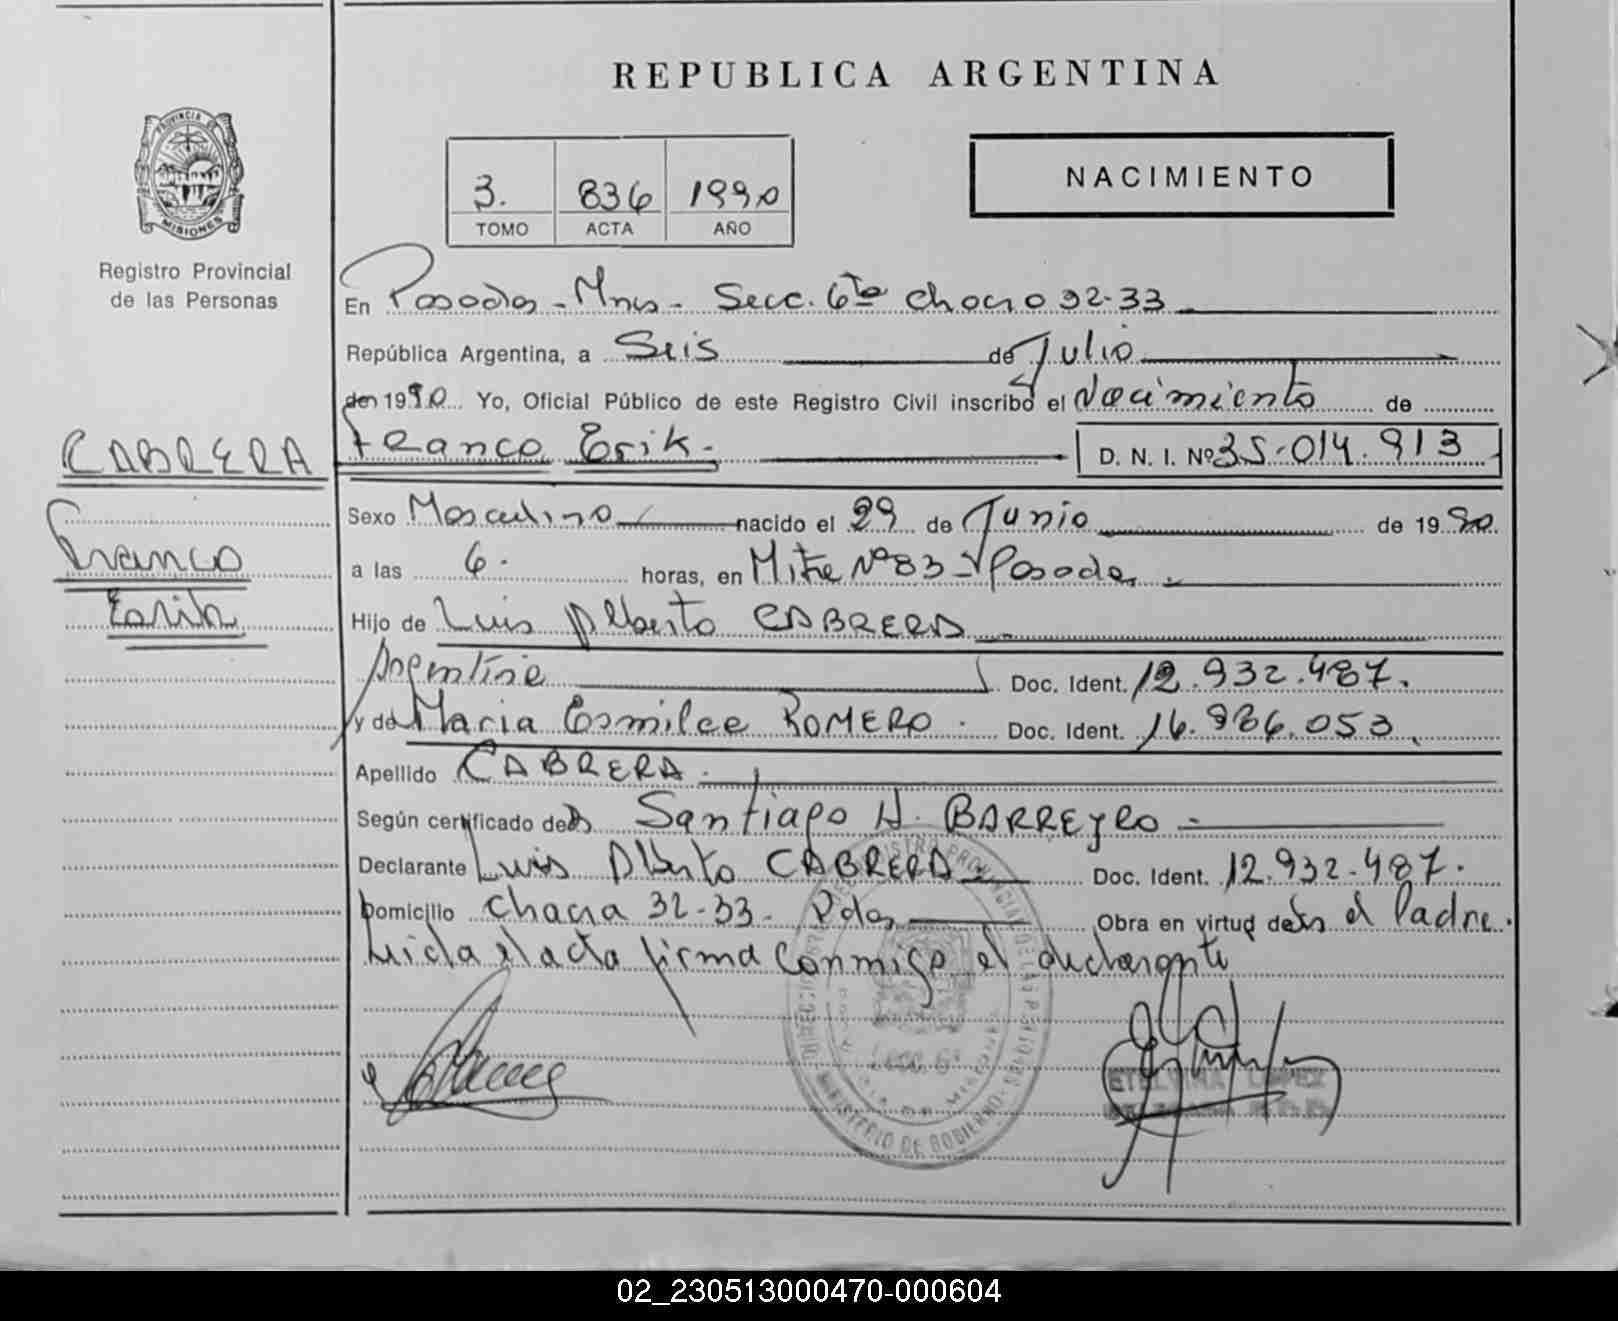 REPUBLICA ARGENTINA
PROVINCIA DE
MISIONES
Registro Provincial
de las Personas
3. 836 1990
TOMO ACTA AÑO
NACIMIENTO
En Posadas - Mnes - Secc. 6ta chacra 32-33
República Argentina, a Seis de Julio
de 1990 Yo, Oficial Público de este Registro Civil inscribo el Nacimiento de
CABRERA
Franco Erik.
D. N. I. Nº 35.014.913
Franco
Erik
Sexo Masculino nacido el 29 de Junio de 1990.
a las 6. horas, en Mitre Nº 83 - Posadas.
Hijo de Luis Alberto CABRERA
Argentino Doc. Ident. 12.932.487.
y de Maria Esmilce ROMERO. Doc. Ident. 16.986.053.
Apellido CABRERA.
Según certificado de Santiago H. BARREYRO
Declarante Luis Alberto CABRERA Doc. Ident. 12.932.487.
Domicilio chacra 32-33. Pdas Obra en virtud de el Padre.
Leida el acta firma conmigo el declarante
MINISTERIO DE GOBIERNO
ETELVINA LOPEZ
02_230513000470-000604